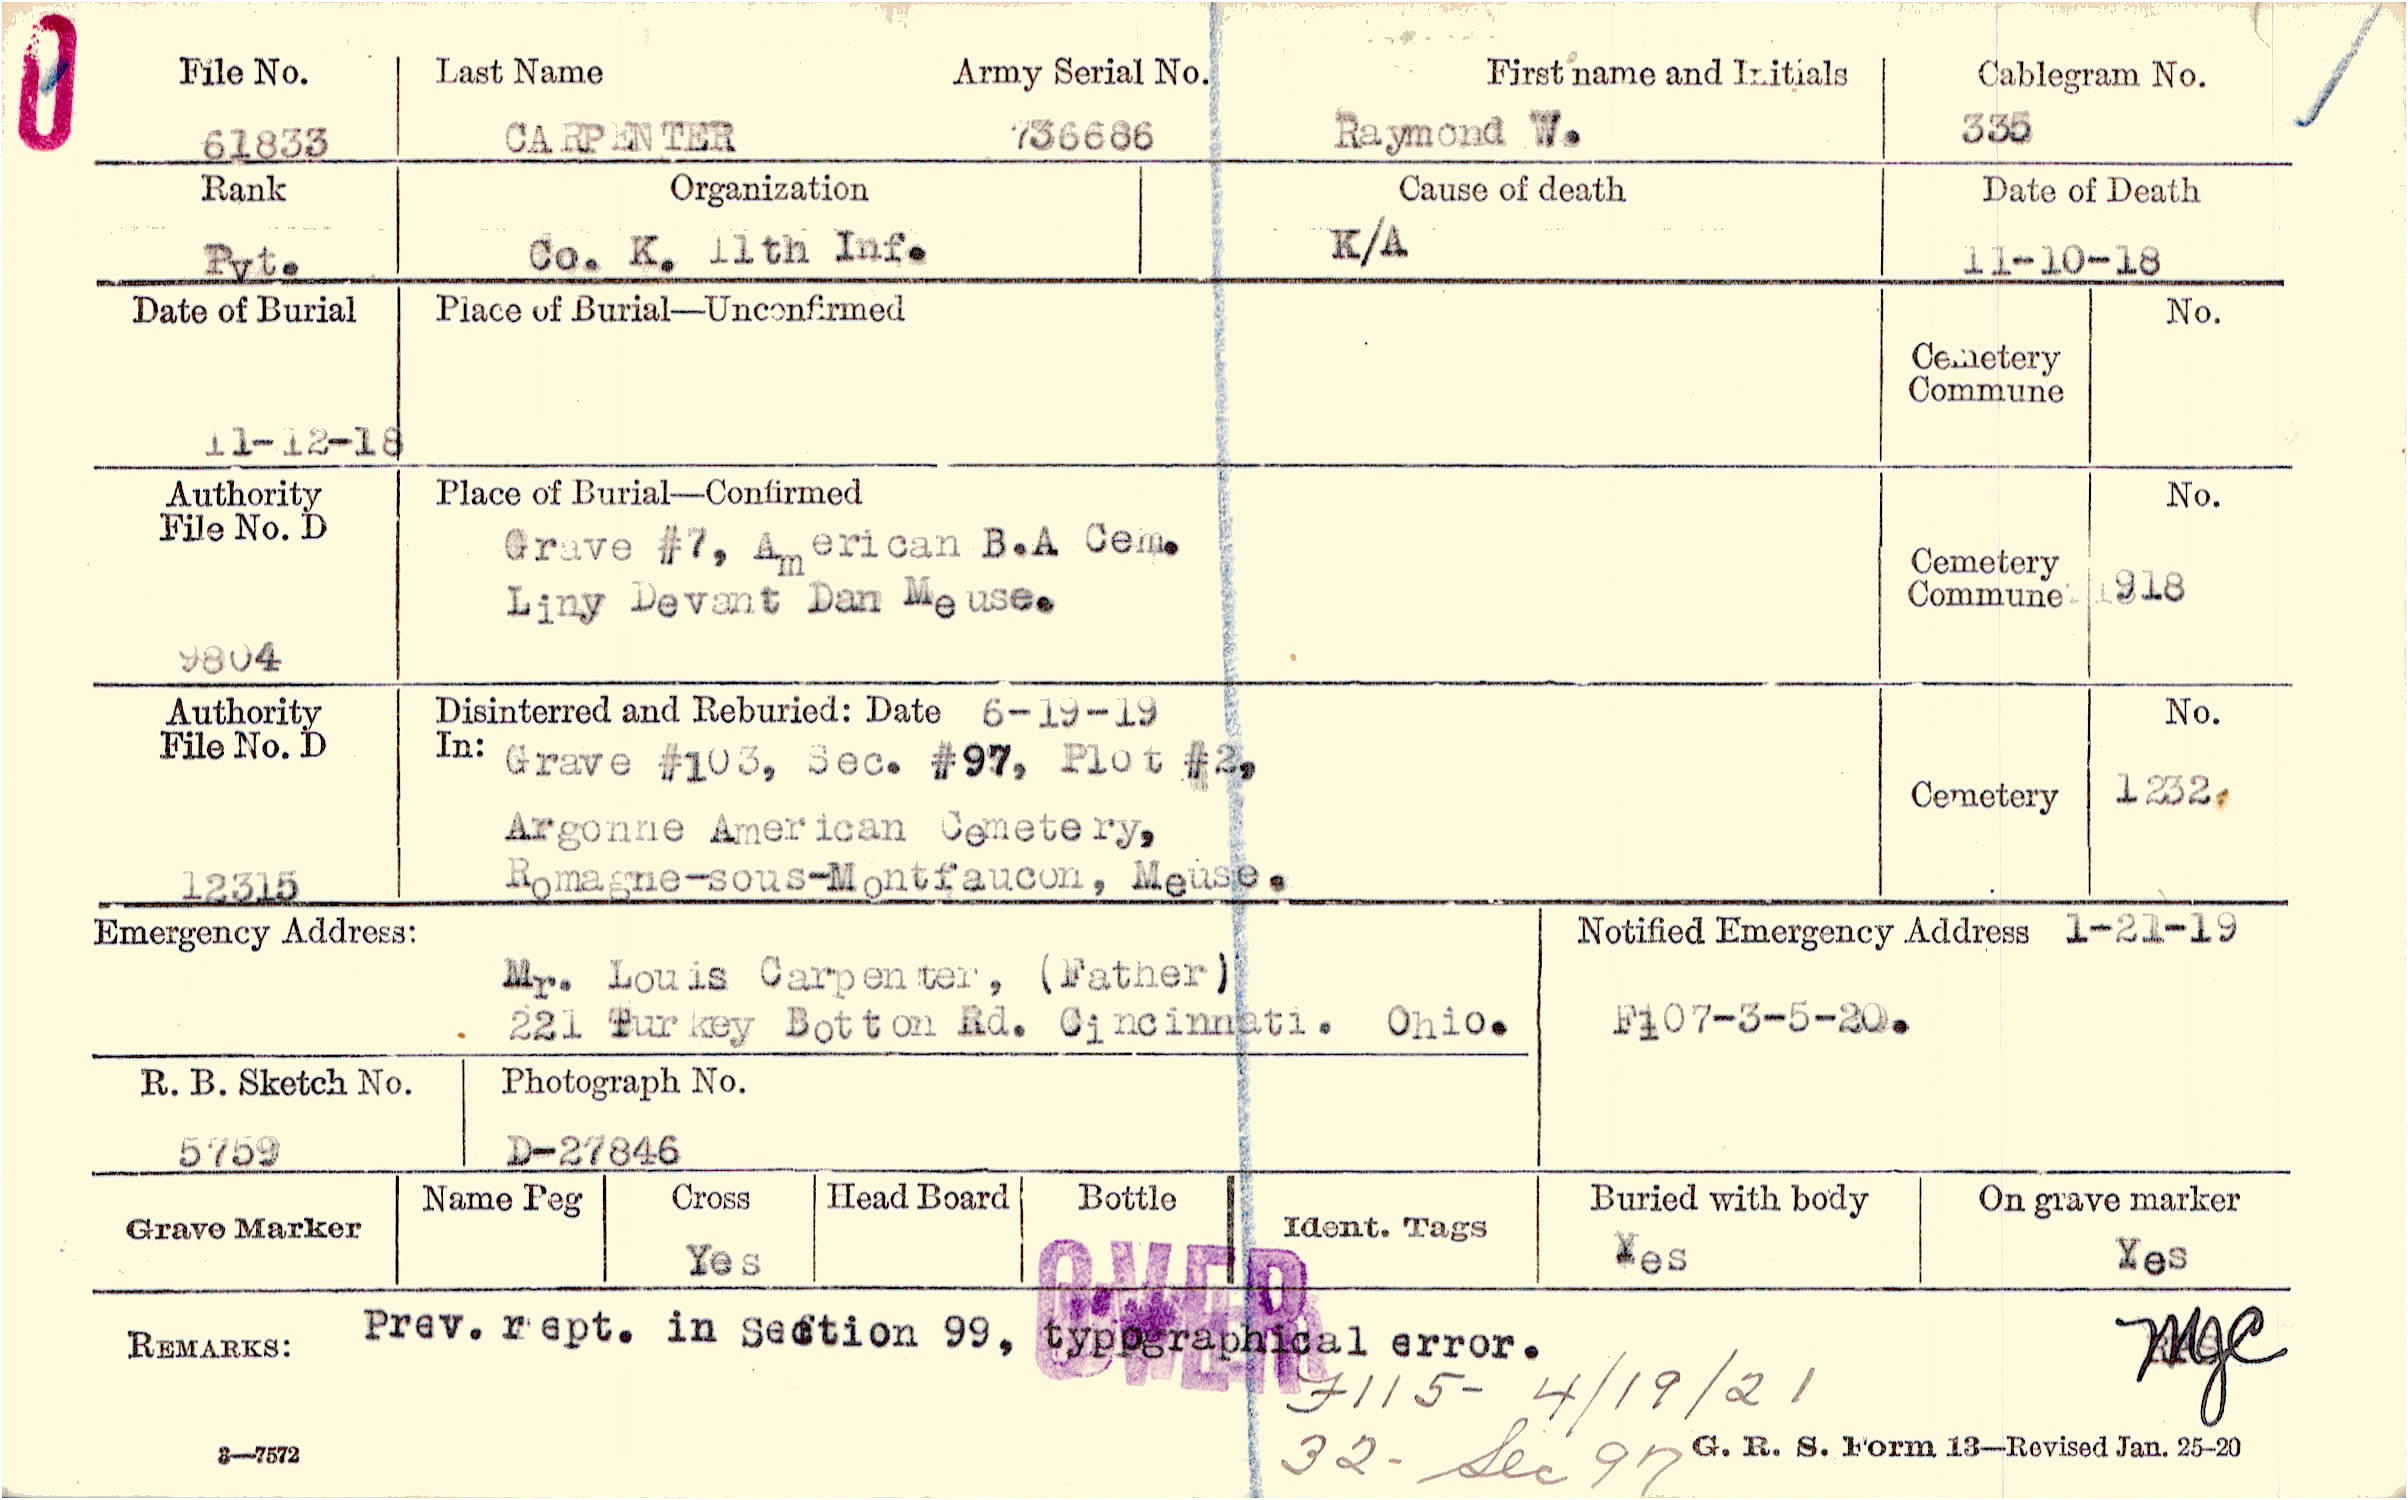 File No. Last Name Army Serial No. First name and Initials Cablegram No.
61833 CARPENTER 736686 Raymond W. 335
Rank Organization Cause of death Date of Death
Pvt. Co. K. 11th Inf. K/A 11-10-18
Date of Burial Place of Burial—Unconfirmed No.
Cemetery
Commune
11-12-18
Authority Place of Burial—Confirmed No.
File No. D
Grave #7, American B.A Cem.
Cemetery
Liny Devant Dan Meuse.
Commune 1918
9804
Authority Disinterred and Reburied: Date 6-19-19 No.
File No. D In: Grave #103, Sec. #97, Plot #2,
Cemetery 1232.
Argonne American Cemetery,
12315 Romagne-sous-Montfaucon, Meuse.
Emergency Address: Notified Emergency Address 1-21-19
Mr. Louis Carpenter, (Father)
221 Turkey Botton Rd. Cincinnati. Ohio. Fi07-3-5-20.
R. B. Sketch No. Photograph No.
5759 D-27846
Grave Marker Name Peg Cross Head Board Bottle Ident. Tags Buried with body On grave marker
Yes Yes Yes
OVER
OVER
REMARKS: Prev. rept. in section 99, typographical error.
MJC
F115- 4/19/21
32- Sec 97
3—7572 G. R. S. Form 13—Revised Jan. 25-20